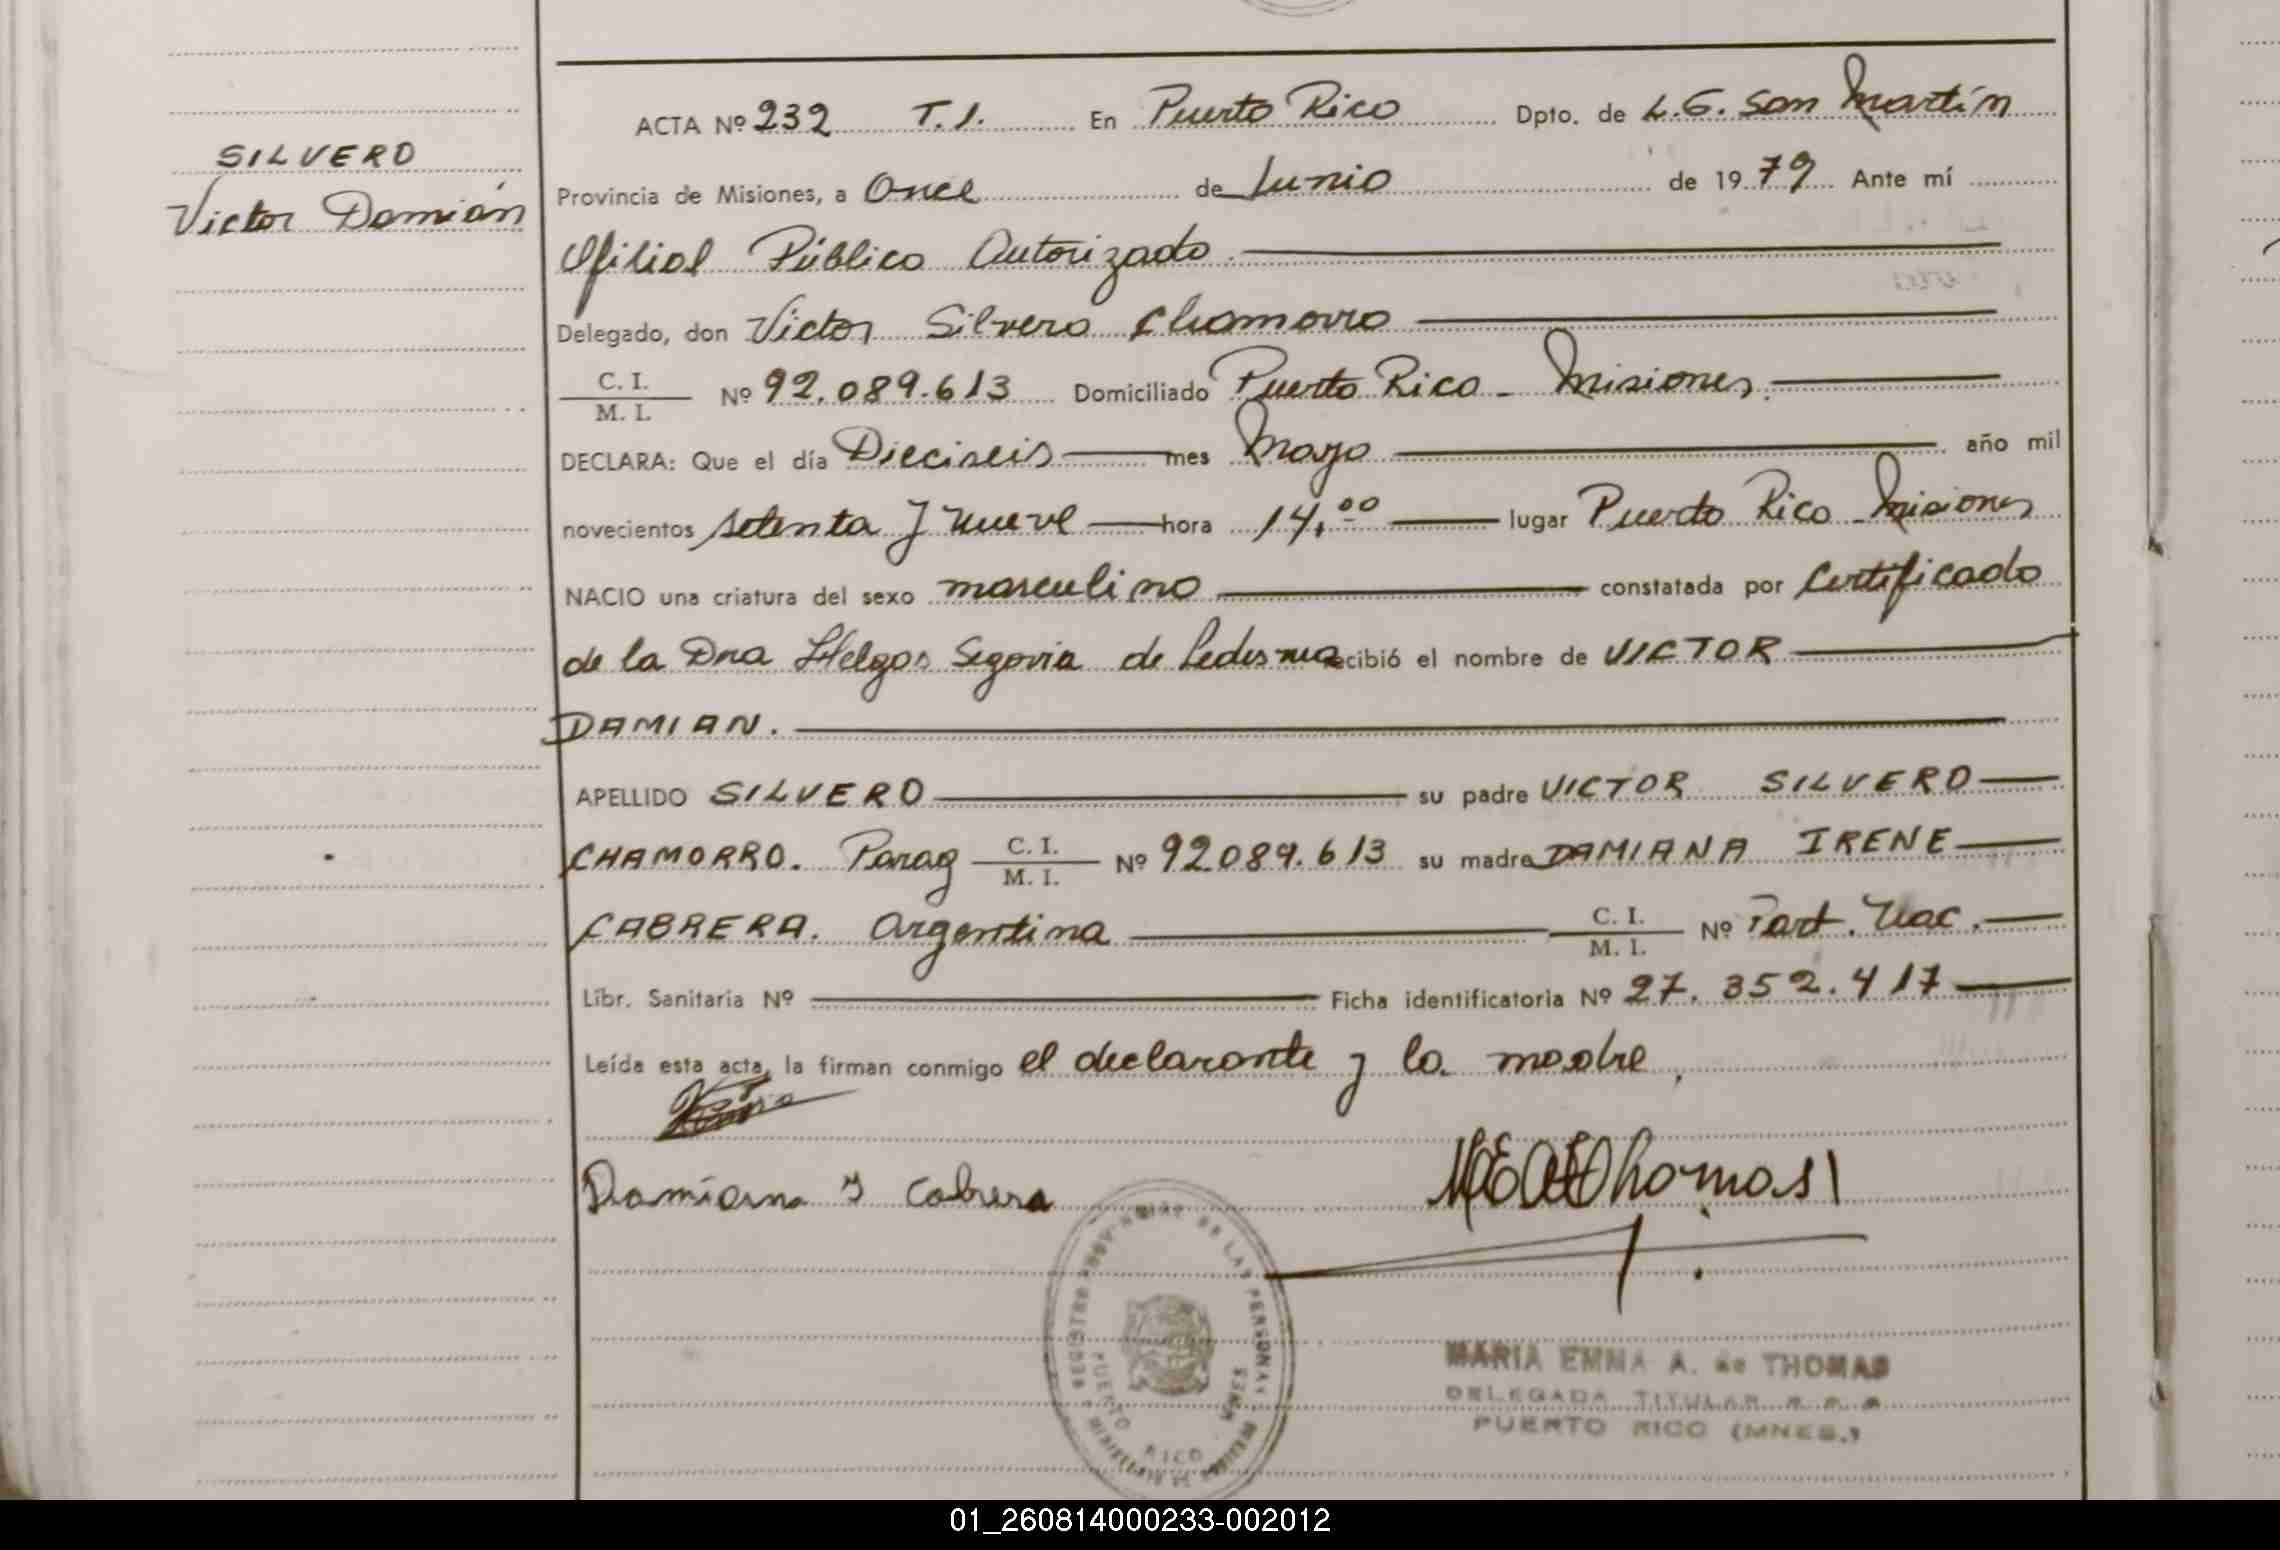 SILVERO
Victor Damián
ACTA Nº 232 T.I. En Puerto Rico Dpto. de L.G. San Martín
Provincia de Misiones, a Once de Junio de 1979 Ante mí
Oficial Público Autorizado
Delegado, don Victor Silvero Chamorro
C. I. / M. I. Nº 92.089.613 Domiciliado Puerto Rico - Misiones.
DECLARA: Que el día Dieciseis mes Mayo año mil
novecientos setenta y nueve hora 14,00 lugar Puerto Rico - Misiones
NACIO una criatura del sexo masculino constatada por Certificado
de la Dra Helga Segovia de Ledesma recibió el nombre de VICTOR
DAMIAN.
APELLIDO SILVERO su padre VICTOR SILVERO
CHAMORRO. Parag C. I. / M. I. Nº 92.089.613 su madre DAMIANA IRENE
CABRERA. Argentina C. I. / M. I. Nº Part. Nac.
Libr. Sanitaria Nº Ficha identificatoria Nº 27.352.417
Leída esta acta, la firman conmigo el declarante y la madre.
Damiana Y Cabrera
M E A de Thomas
REGISTRO PROVINCIAL DE LAS PERSONAS
PUERTO RICO MNES
MARIA EMMA A. de THOMAS
DELEGADA TITULAR
PUERTO RICO (MNES.)
01_260814000233-002012